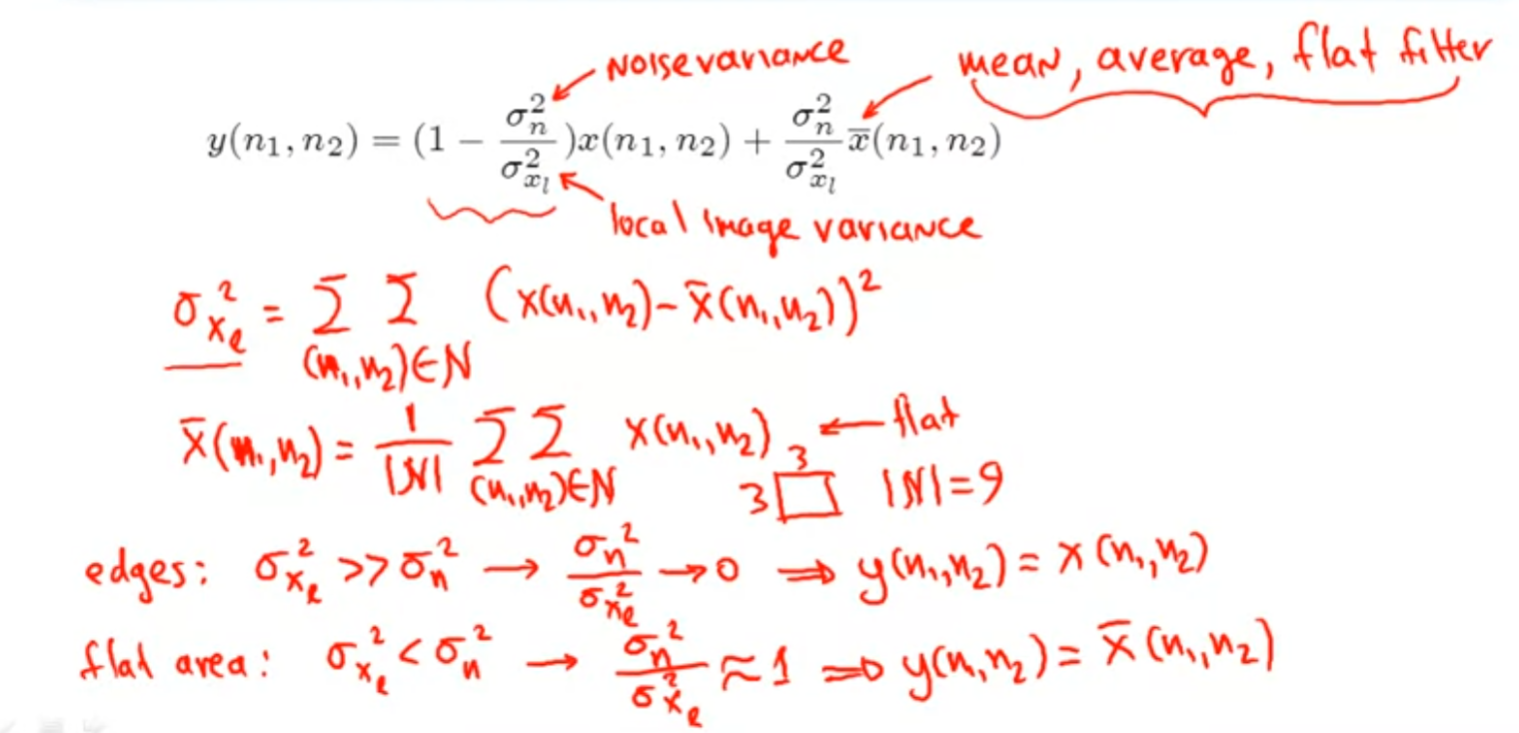 Noise variance
mean, average, flat filter
y(n₁, n₂) = (1 − σₙ²/σₓₗ²)x(n₁, n₂) + σₙ²/σₓₗ² x̅(n₁, n₂)
local image variance
σₓₗ² = Σ Σ (x(n₁,n₂) − x̅(n₁,n₂))²
(n₁,n₂)∈N
x̅(n₁,n₂) = 1/|N| Σ Σ x(n₁,n₂) ← flat
(n₁,n₂)∈N 3 3 |N|=9
edges: σₓₗ² >> σₙ² → σₙ²/σₓₗ² → 0 ⇒ y(n₁,n₂) = x(n₁,n₂)
flat area: σₓₗ² < σₙ² → σₙ²/σₓₗ² ≈ 1 ⇒ y(n₁,n₂) = x̅(n₁,n₂)